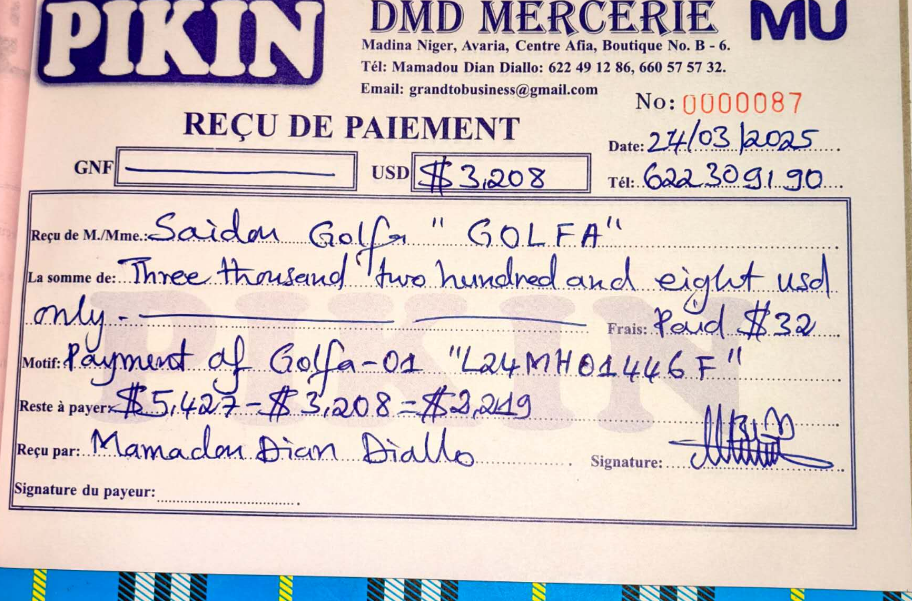 PIKIN
DMD MERCERIE
MU
Madina Niger, Avaria, Centre Afia, Boutique No. B - 6.
Tél: Mamadou Dian Diallo: 622 49 12 86, 660 57 57 32.
Email: grandtobusiness@gmail.com
No: 0000087
REÇU DE PAIEMENT
Date: 24/03/2025
GNF
USD $3,208
Tél: 622 309190
Reçu de M./Mme.: Saidou Golfa " GOLFA"
La somme de: Three thousand two hundred and eight usd
only.-
Frais: Paid $32
Motif: Payment of Golfa-01 "L24MH01446F"
Reste à payer: $5,427-$3,208=$2,219
Reçu par: Mamadou Dian Diallo
Signature:
Signature du payeur:
PIKIN